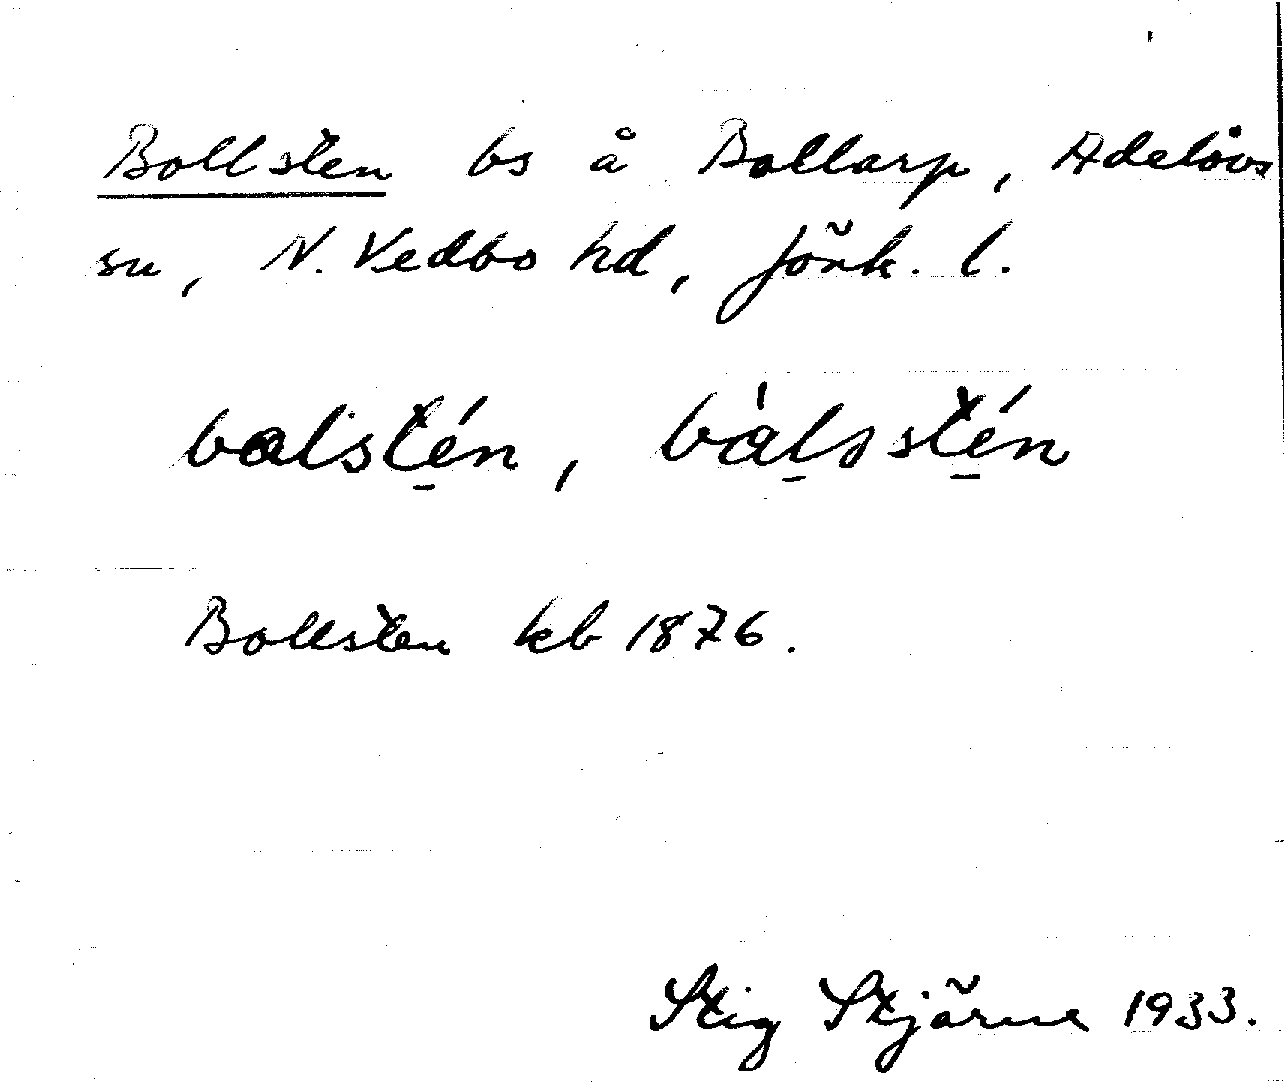 Bollsten bs å Bollarp, Adelövs
sn, N. Vedbo hd, Jönk. l.
balstén, bàlsstén
Bollsten kb 1876.
Stig Stjärne 1933.